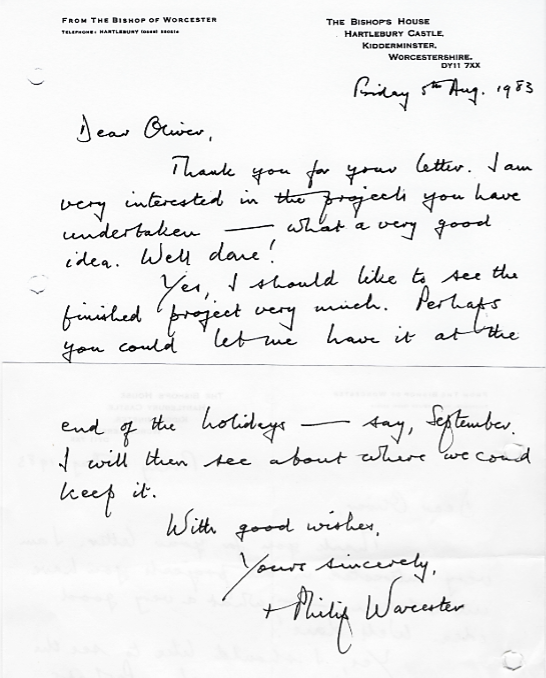 FROM THE BISHOP OF WORCESTER
TELEPHONE: HARTLEBURY
THE BISHOP'S HOUSE
HARTLEBURY CASTLE,
KIDDERMINSTER,
WORCESTERSHIRE.
DY11 7XX
Friday 5th Aug. 1983
Dear Oliver,
Thank you for your letter. I am
very interested in the projects you have
undertaken — what a very good
idea. Well done!
Yes, I should like to see the
finished project very much. Perhaps
you could let me have it at the
end of the holidays — say, September.
I will then see about where we could
keep it.
With good wishes,
Yours sincerely,
+ Philip Worcester